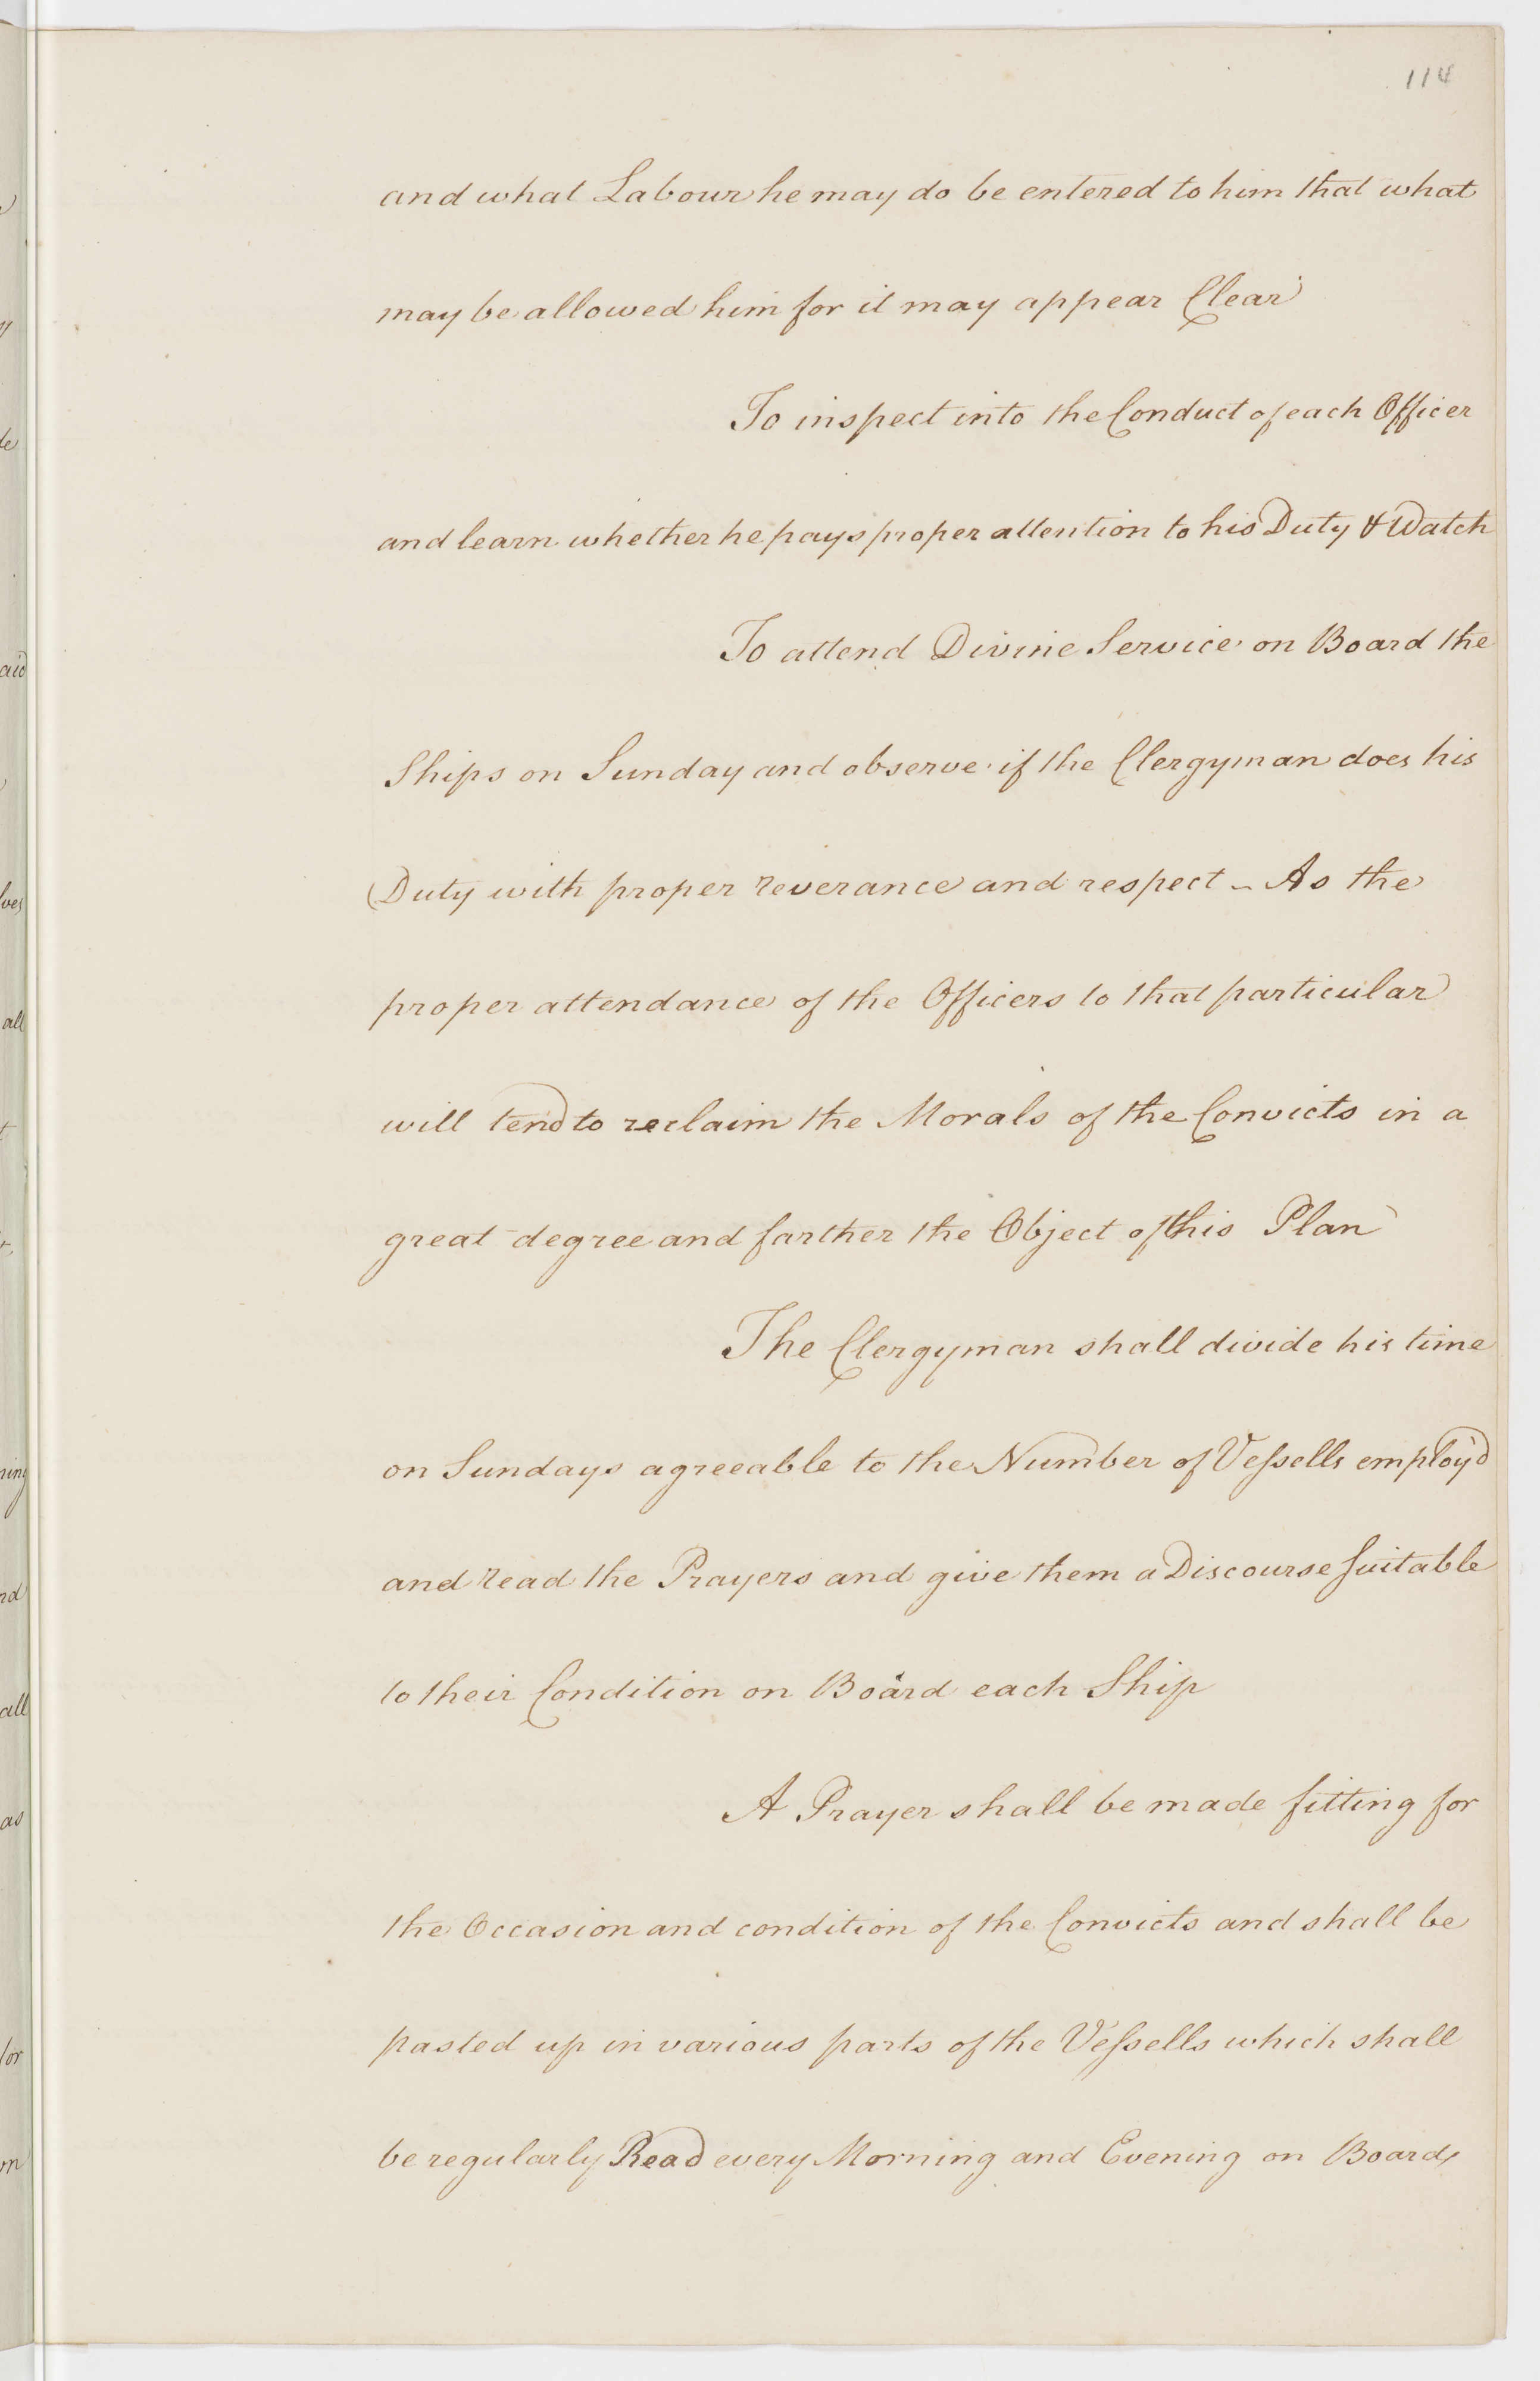 114
and what Labour he may do be entered to him that what
may be allowed him for it may appear Clear
To inspect into the Conduct of each Officer
and learn whether he pays proper attention to his Duty & Watch
To attend Divine Service on Board the
Ships on Sunday and observe if the Clergyman does his
Duty with proper reverance and respect - As the
proper attendance of the Officers to that particular
will tend to reclaim the Morals of the Convicts in a
great degree and farther the Object of this Plan
The Clergyman shall divide his time
on Sundays agreeable to the Number of Veſsells employ'd
and read the Prayers and give them a Discourse Suitable
to their Condition on Board each Ship
A Prayer shall be made fitting for
the Occasion and condition of the Convicts and shall be
pasted up in various parts of the Veſsells which shall
be regularly Read every Morning and Evening on Board,